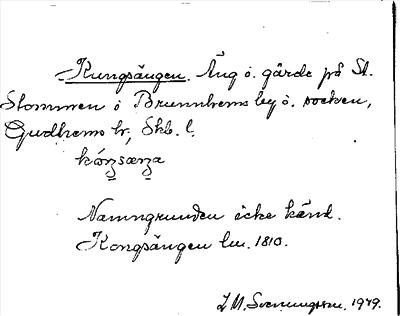 Kungsängen. Äng o. gärde på St.
Stommen i Brunnhems by o. socken,
Gudhems hr, Skb. l.
Namngrunden icke känd.
Kongsängen lm. 1810.
1949.